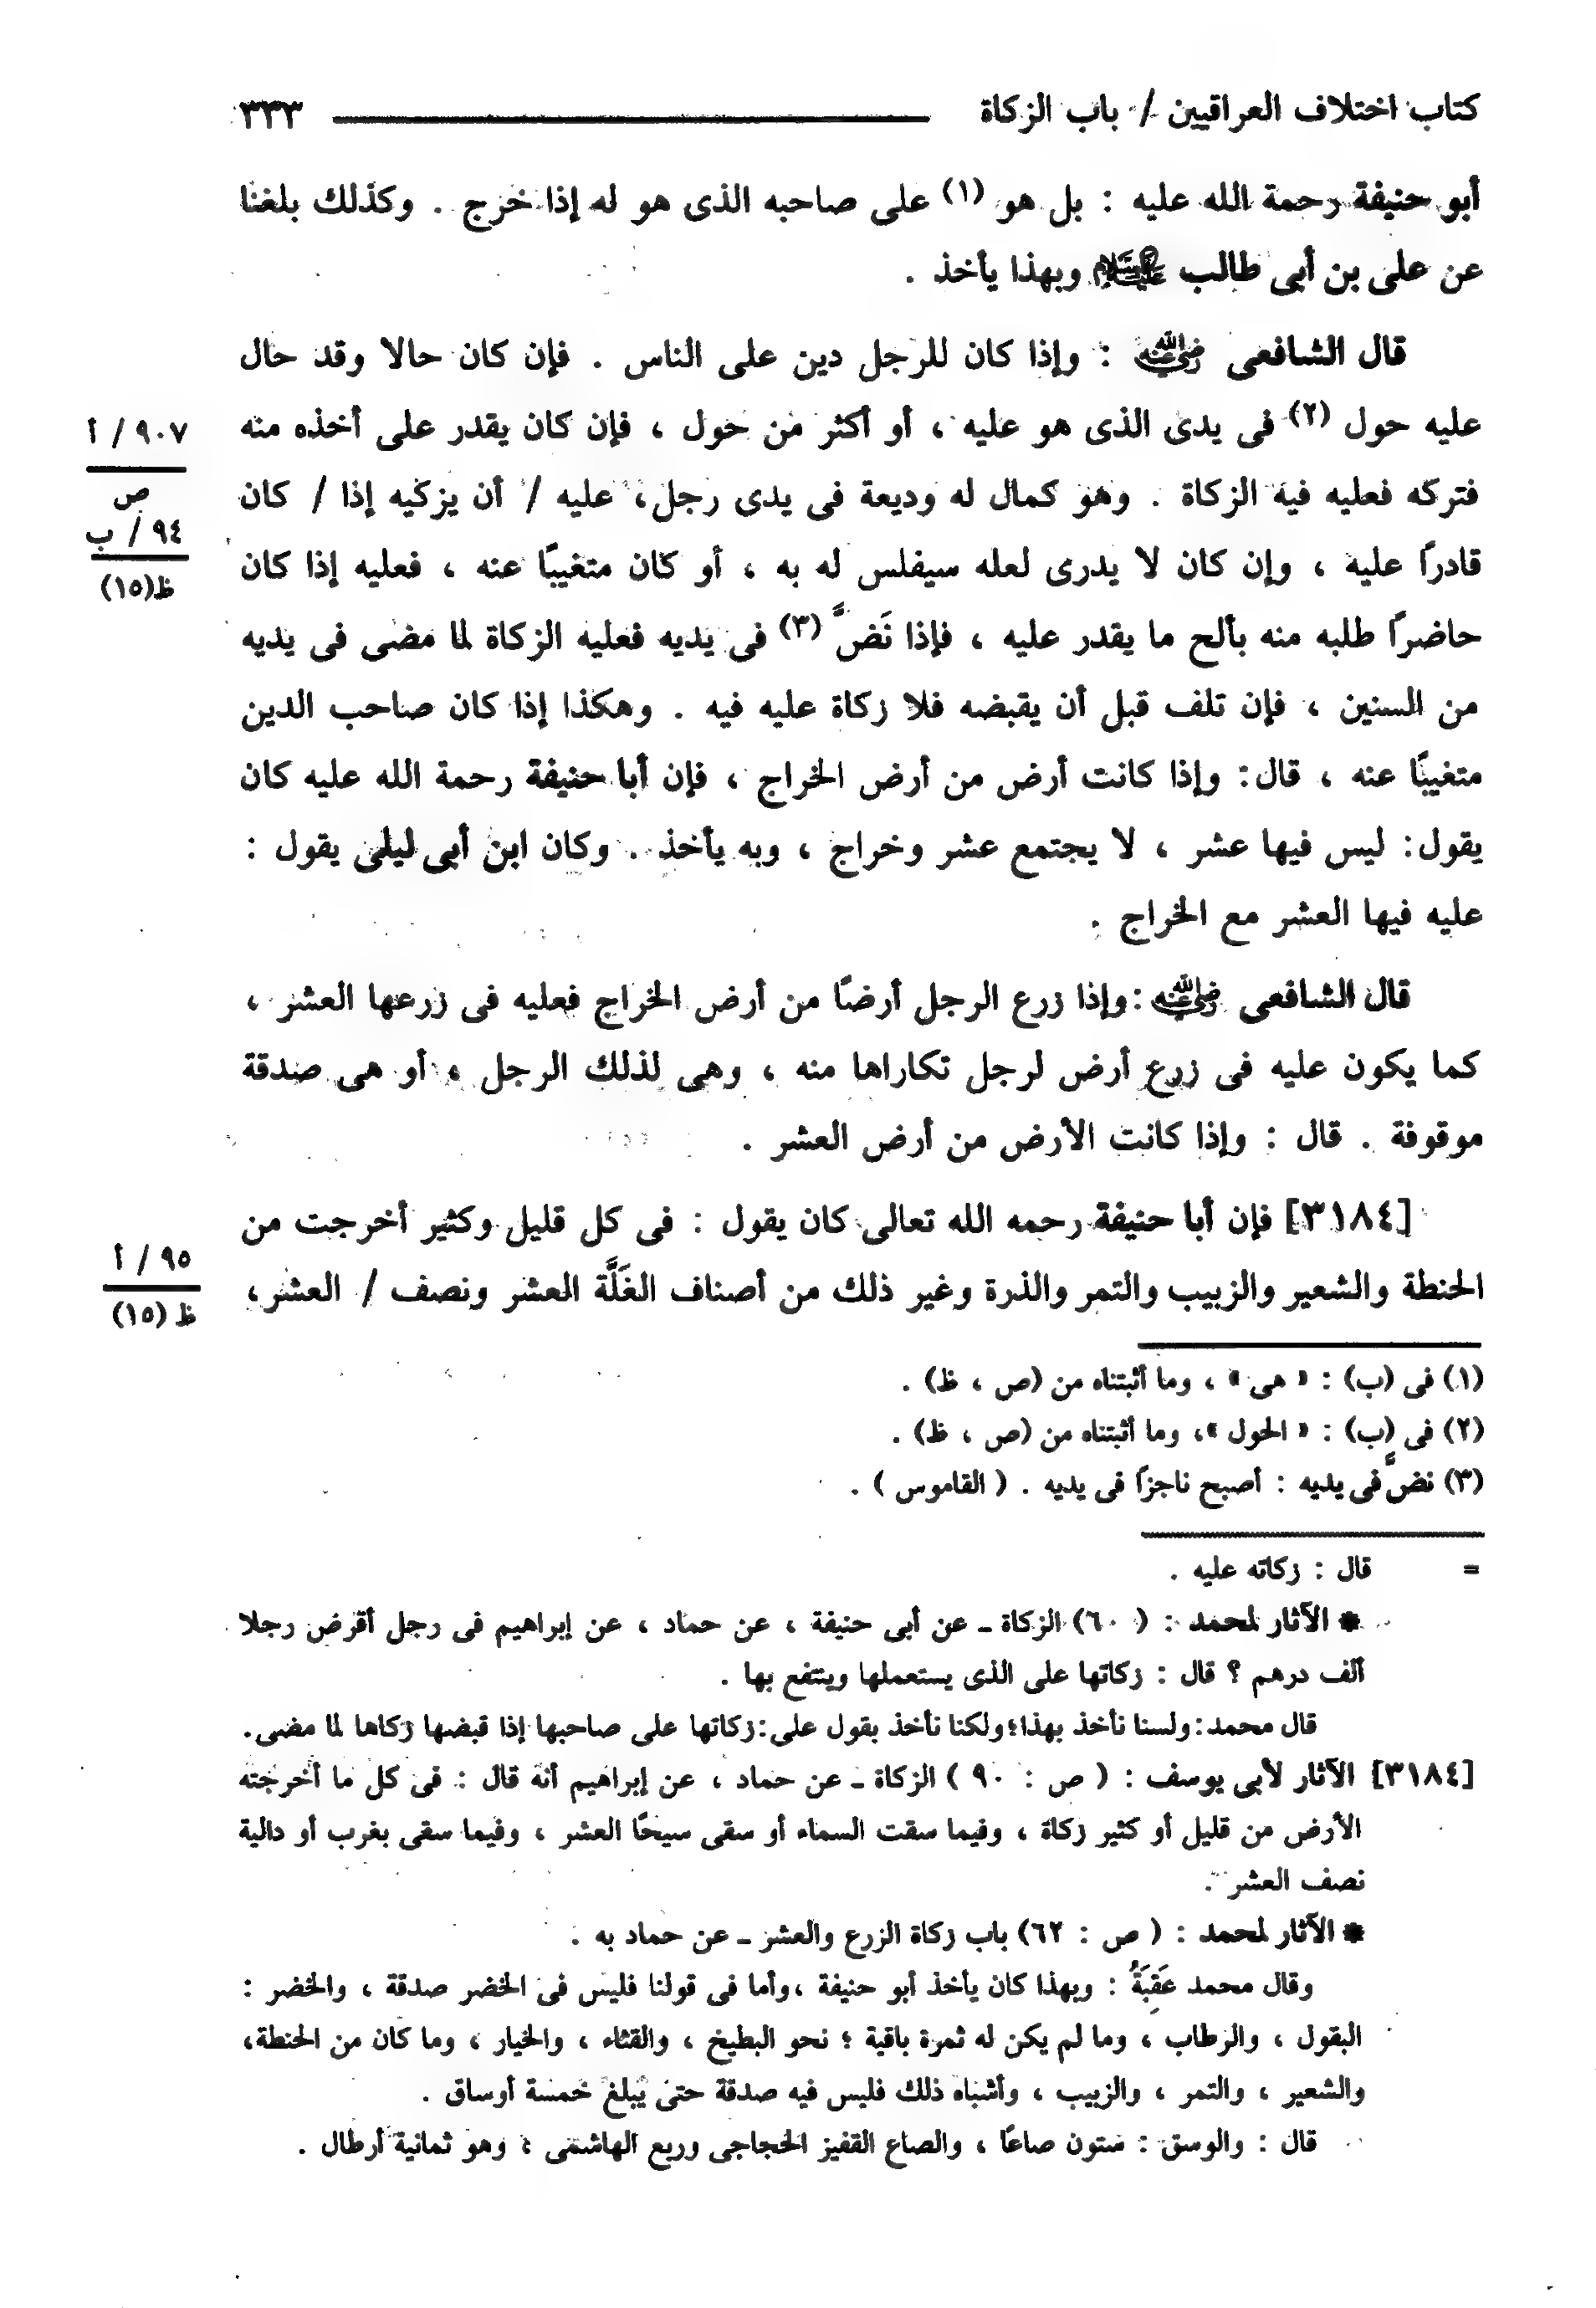 كتاب اختلاف العراقيين / باب الزكاة ٣٣٣
أبو حنيفة رحمة الله عليه : بل هو (١) على صاحبه الذى هو له إذا خرج . وكذلك بلغنا
عن على بن أبى طالب عليه السلام وبهذا يأخذ .
قال الشافعى رضي الله عنه : وإذا كان للرجل دين على الناس . فإن كان حالا وقد حال
عليه حول (٢) فى يدى الذى هو عليه ، أو أكثر من حول ، فإن كان يقدر على أخذه منه
فتركه فعليه فيه الزكاة . وهو كمال له وديعة فى يدى رجل، عليه / أن يزكيه إذا / كان
قادرًا عليه ، وإن كان لا يدرى لعله سيفلس له به ، أو كان متغيبًا عنه ، فعليه إذا كان
حاضرًا طلبه منه بألح ما يقدر عليه ، فإذا نَضَّ (٣) فى يديه فعليه الزكاة لما مضى فى يديه
من السنين ، فإن تلف قبل أن يقبضه فلا زكاة عليه فيه . وهكذا إذا كان صاحب الدين
متغيبًا عنه ، قال: وإذا كانت أرض من أرض الخراج ، فإن أبا حنيفة رحمة الله عليه كان
يقول: ليس فيها عشر ، لا يجتمع عشر وخراج ، وبه يأخذ . وكان ابن أبى ليلى يقول :
عليه فيها العشر مع الخراج .
قال الشافعى رضي الله عنه :وإذا زرع الرجل أرضًا من أرض الخراج فعليه فى زرعها العشر ،
كما يكون عليه فى زرع أرض لرجل تكاراها منه ، وهى لذلك الرجل ، أو هى صدقة
موقوفة . قال : وإذا كانت الأرض من أرض العشر .
[٣١٨٤] فإن أبا حنيفة رحمه الله تعالى كان يقول : فى كل قليل وكثير أخرجت من
الحنطة والشعير والزبيب والتمر والذرة وغير ذلك من أصناف الغَلَّة العشر ونصف / العشر،
٩٠٧ / أ
ص
٩٤ / ب
ظ(١٥)
٩٥ / أ
ظ (١٥)
(١) فى (ب) : « هى » ، وما أثبتناه من (ص ، ظ) .
(٢) فى (ب) : « الحول »، وما أثبتناه من (ص ، ظ) .
(٣) نضَّ فى يديه : أصبح ناجزًا فى يديه . ( القاموس ) .
= قال : زكاته عليه .
* الآثار لمحمد : ( ٦٠) الزكاة ـ عن أبى حنيفة ، عن حماد ، عن إبراهيم فى رجل أقرض رجلا
ألف درهم ؟ قال : زكاتها على الذى يستعملها وينتفع بها .
قال محمد:ولسنا نأخذ بهذا؛ولكنا نأخذ بقول على:زكاتها على صاحبها إذا قبضها زكاها لما مضى.
[٣١٨٤] الآثار لأبى يوسف : ( ص : ٩٠ ) الزكاة ـ عن حماد ، عن إبراهيم أنه قال : فى كل ما أخرجته
الأرض من قليل أو كثير زكاة ، وفيما سقت السماء أو سقى سيحًا العشر ، وفيما سقى بغرب أو دالية
نصف العشر .
* الآثار لمحمد : ( ص : ٦٢) باب زكاة الزرع والعشر ـ عن حماد به .
وقال محمد عَقِبَهُ : وبهذا كان يأخذ أبو حنيفة ،وأما فى قولنا فليس فى الخضر صدقة ، والخضر :
البقول ، والرطاب ، وما لم يكن له ثمرة باقية ؛ نحو البطيخ ، والقثاء ، والخيار ، وما كان من الحنطة،
والشعير ، والتمر ، والزبيب ، وأشباه ذلك فليس فيه صدقة حتى يبلغ خمسة أوساق .
قال : والوسق : ستون صاعًا ، والصاع القفيز الحجاجى وربع الهاشمى ؛ وهو ثمانية أرطال .